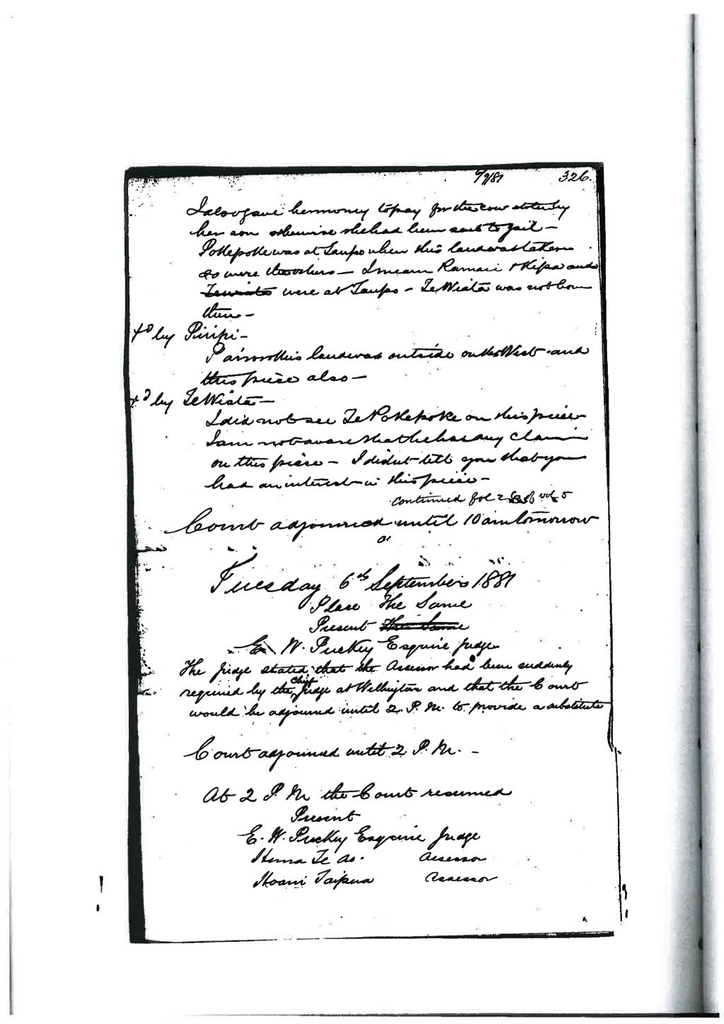 6/9/87 326.
I also gave her money to pay for the cow stolen by
her son otherwise she had been sent to jail —
Pokepoke was at Taupo when this land was taken
so were the others — I mean Ramari & Kipa and
Te Wiata were at Taupo — Te Wiata was not born
then —
xd by Piripi —
Pairoro this land was outside on the West and
this piece also —
xd by Te Wiata —
I did not see Te Pokepoke on this piece
I am not aware that he has any claim
on this piece — I didn't tell you that you
had an interest in this piece —
continued fol 2 of vol 5
Court adjourned until 10 am tomorrow
Tuesday 6th September 1887
Place The Same
Present The Same
E. W. Puckey Esquire Judge
The Judge stated that the Assessor had been suddenly
required by the Chief Judge at Wellington and that the Court
would be adjourned until 2 P.M. to provide a substitute
Court adjourned until 2 P.M. —
At 2 P M the Court resumed
Present
E. W. Puckey Esquire Judge
Hema Te Ao. Assessor
Hoani Taipua Assessor